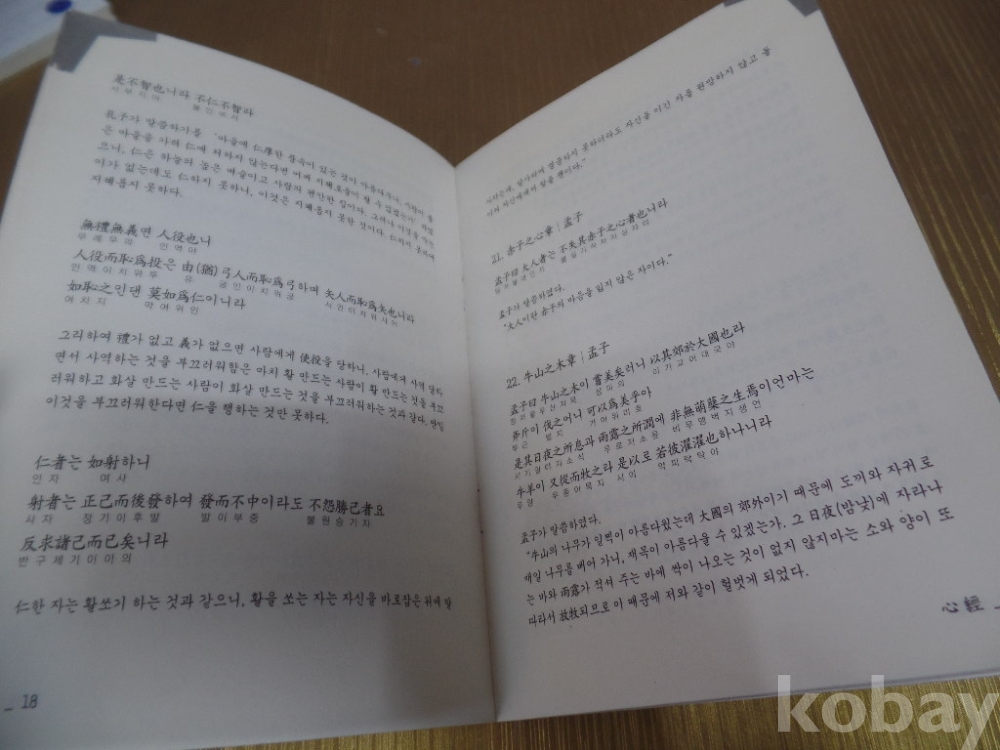 是不智也니라 不仁不智라
시부지야 불인부지
孔子가 말씀하기를
은 마을을 가려 仁에 처하지 않는다면 어찌 지혜로움이 될 수 있겠는가.' 하셨
으니, 仁은 하늘의 높은 벼슬이고 사람의 편안한 집이다. 그러나 이것을 막는
이가 없는데도 仁하지 못하니, 이것은 지혜롭지 못한 것이다. 仁하지 못하며
지혜롭지 못하다.
無禮無義면 人役也니
무례무의 인역야
人役而恥爲役은 由(猶)弓人而恥爲弓하며 矢人而恥爲矢也니라
인역이치위역 유 궁인이치위궁 시인이치위시야
如恥之인댄 莫如爲仁이니라
여치지 막여위인
그리하여 禮가 없고 義가 없으면 사람에게 使役을 당하니, 사람에게 사역 당하
면서 사역하는 것을 부끄러워함은 마치 활 만드는 사람이 활 만드는 것을 부끄
러워하고 화살 만드는 사람이 화살 만드는 것을 부끄러워하는 것과 같다. 만일
이것을 부끄러워한다면 仁을 행하는 것만 못하다.
仁者는 如射하니
인자 여사
射者는 正己而後發하여 發而不中이라도 不怨勝己者요
사자 정기이후발 발이부중 불원승기자
反求諸己而已矣니라
반구제기이이의
仁한 자는 활쏘기 하는 것과 같으니, 활을 쏘는 자는 자신을 바로잡은 뒤에 발
_ 18
사하는데, 발사하여 적중하지 못하더라도 자신을 이긴 자를 원망하지 않고 돌
이켜 자신에게서 찾을 뿐이다."
21. 赤子之心章 | 孟子
孟子曰 大人者는 不失其赤子之心者也니라
맹자왈대인자 불실기적자지심자야
孟子가 말씀하였다.
"大人이란 赤子의 마음을 잃지 않은 자이다."
22. 牛山之木章 | 孟子
孟子曰 牛山之木이 嘗美矣러니 以其郊於大國也라
맹자왈우산지목 상미의 이기교어대국야
斧斤이 伐之어니 可以爲美乎아
부근 벌지 가이위미호
是其日夜之所息과 雨露之所潤에 非無萌蘖之生焉이언마는
시기일야지소식 우로지소윤 비무맹벽지생언
牛羊이 又從而牧之라 是以로 若彼濯濯也하나니라
우양 우종이목지 시이 약피탁탁야
孟子가 말씀하였다.
"牛山의 나무가 일찍이 아름다웠는데 大國의 郊外이기 때문에 도끼와 자귀로
매일 나무를 베어 가니, 재목이 아름다울 수 있겠는가. 그 日夜(밤낮)에 자라나
는 바와 雨露가 적셔 주는 바에 싹이 나오는 것이 없지 않지마는 소와 양이 또
따라서 放牧되므로 이 때문에 저와 같이 헐벗게 되었다.
心經 _
kobay